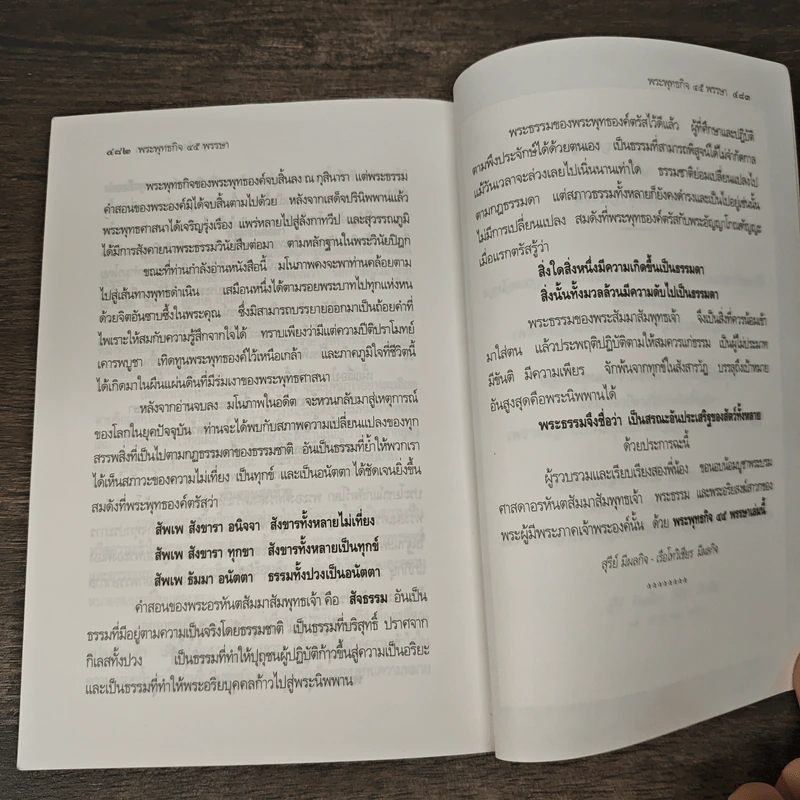 ๔๘๒ พระพุทธกิจ ๔๕ พรรษา
พระพุทธกิจของพระพุทธองค์จบสิ้นลง ณ กุสินารา แต่พระธรรม
คำสอนของพระองค์มิได้จบสิ้นตามไปด้วย หลังจากเสด็จปรินิพพานแล้ว
พระพุทธศาสนาได้เจริญรุ่งเรือง แพร่หลายไปสู่ลังกาทวีป และสุวรรณภูมิ
ได้มีการสังคายนาพระธรรมวินัยสืบต่อมา ตามหลักฐานในพระวินัยปิฎก
ขณะที่ท่านกำลังอ่านหนังสือนี้ มโนภาพคงจะพาท่านคล้อยตาม
ไปสู่เส้นทางพุทธดำเนิน เสมือนหนึ่งได้ตามรอยพระบาทไปทุกแห่งหน
ด้วยจิตอันซาบซึ้งในพระคุณ ซึ่งมิสามารถบรรยายออกมาเป็นถ้อยคำที่
ไพเราะให้สมกับความรู้สึกจากใจได้ ทราบเพียงว่ามีแต่ความปีติปราโมทย์
เคารพบูชา เทิดทูนพระพุทธองค์ไว้เหนือเกล้า และภาคภูมิใจที่ชีวิตนี้
ได้เกิดมาในผืนแผ่นดินที่มีร่มเงาของพระพุทธศาสนา
หลังจากอ่านจบลง มโนภาพในอดีต จะหวนกลับมาสู่เหตุการณ์
ของโลกในยุคปัจจุบัน ท่านจะได้พบกับสภาพความเปลี่ยนแปลงของทุก
สรรพสิ่งที่เป็นไปตามกฎธรรมดาของธรรมชาติ อันเป็นธรรมที่ย้ำให้พวกเรา
ได้เห็นสภาวะของความไม่เที่ยง เป็นทุกข์ และเป็นอนัตตา ได้ชัดเจนยิ่งขึ้น
สมดังที่พระพุทธองค์ตรัสว่า
สัพเพ สังขารา อนิจจา สังขารทั้งหลายไม่เที่ยง
สัพเพ สังขารา ทุกขา สังขารทั้งหลายเป็นทุกข์
สัพเพ ธัมมา อนัตตา ธรรมทั้งปวงเป็นอนัตตา
คำสอนของพระอรหันตสัมมาสัมพุทธเจ้า คือ สัจธรรม อันเป็น
ธรรมที่มีอยู่ตามความเป็นจริงโดยธรรมชาติ เป็นธรรมที่บริสุทธิ์ ปราศจาก
กิเลสทั้งปวง เป็นธรรมที่ทำให้ปุถุชนผู้ปฏิบัติก้าวขึ้นสู่ความเป็นอริยะ
และเป็นธรรมที่ทำให้พระอริยบุคคลก้าวไปสู่พระนิพพาน
พระพุทธกิจ ๔๕ พรรษา ๔๘๓
พระธรรมของพระพุทธองค์ตรัสไว้ดีแล้ว ผู้ที่ศึกษาและปฏิบัติ
ตามพึงประจักษ์ได้ด้วยตนเอง เป็นธรรมที่สามารถพิสูจน์ได้ไม่จำกัดกาล
แม้วันเวลาจะล่วงเลยไปเนิ่นนานเท่าใด ธรรมชาติย่อมเปลี่ยนแปลงไป
ตามกฎธรรมดา แต่สภาวธรรมทั้งหลายก็ยังคงดำรงและเป็นไปอยู่เช่นนั้น
ไม่มีการเปลี่ยนแปลง สมดังที่พระพุทธองค์ตรัสกับพระอัญญาโกณฑัญญะ
เมื่อแรกตรัสรู้ว่า
สิ่งใดสิ่งหนึ่งมีความเกิดขึ้นเป็นธรรมดา
สิ่งนั้นทั้งมวลล้วนมีความดับไปเป็นธรรมดา
พระธรรมของพระสัมมาสัมพุทธเจ้า จึงเป็นสิ่งที่ควรน้อมเข้า
มาใส่ตน แล้วประพฤติปฏิบัติตามให้สมควรแก่ธรรม เป็นผู้ไม่ประมาท
มีขันติ มีความเพียร จักพ้นจากทุกข์ในสังสารวัฏ บรรลุถึงเป้าหมาย
อันสูงสุดคือพระนิพพานได้
พระธรรมจึงชื่อว่า เป็นสรณะอันประเสริฐของสัตว์ทั้งหลาย
ด้วยประการฉะนี้
ผู้รวบรวมและเรียบเรียงสองพี่น้อง ขอนอบน้อมบูชาพระบรม
ศาสดาอรหันตสัมมาสัมพุทธเจ้า พระธรรม และพระอริยสงฆ์สาวกของ
พระผู้มีพระภาคเจ้าพระองค์นั้น ด้วย พระพุทธกิจ ๔๕ พรรษาเล่มนี้
สุรีย์ มีผลกิจ - เรือโทวิเชียร มีผลกิจ